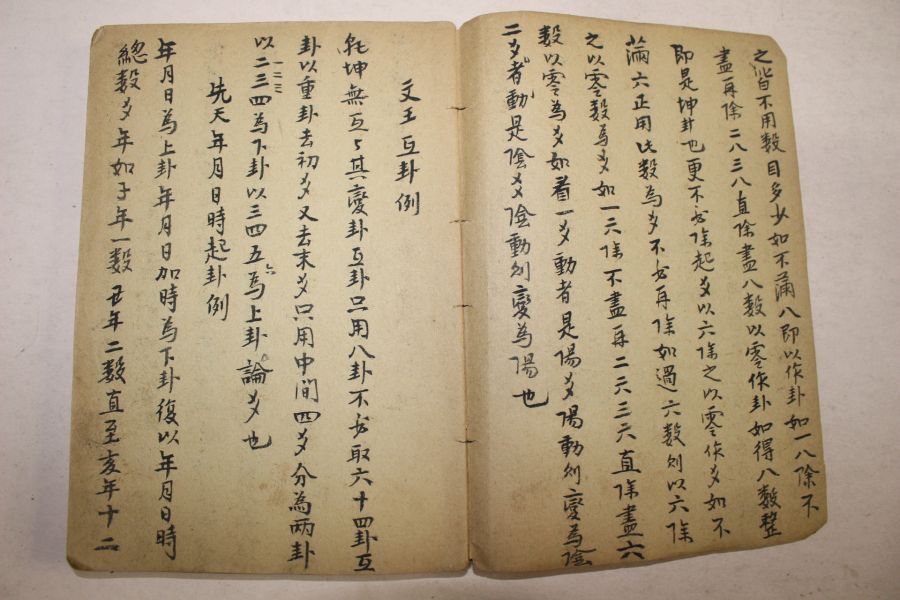 之皆不用数目多少如不滿八即以作卦如一八除不
盡再除二八三八直除盡八数以零作卦如得八数整
即是坤卦也更不必除起爻以六除之以零作爻如不
滿六正用此数為爻不必再除如過六数則以六除
之以零数為爻如一六除不盡再二六三六直除盡六
数以零為爻如看一爻動者是陽爻陽動則變為陰
二爻者動是陰爻陰動則變為陽也
文王互卦例
乾坤無互〻其變卦互卦只用八卦不必取六十四卦互
卦以重卦去初爻又去末爻只用中間四爻分為两卦
以二三四為下卦以三四五為上卦論爻也
先天年月日時起卦例
年月日為上卦年月日加時為下卦復以年月日時
總数爻年如子年一数丑年二数直至亥年十二